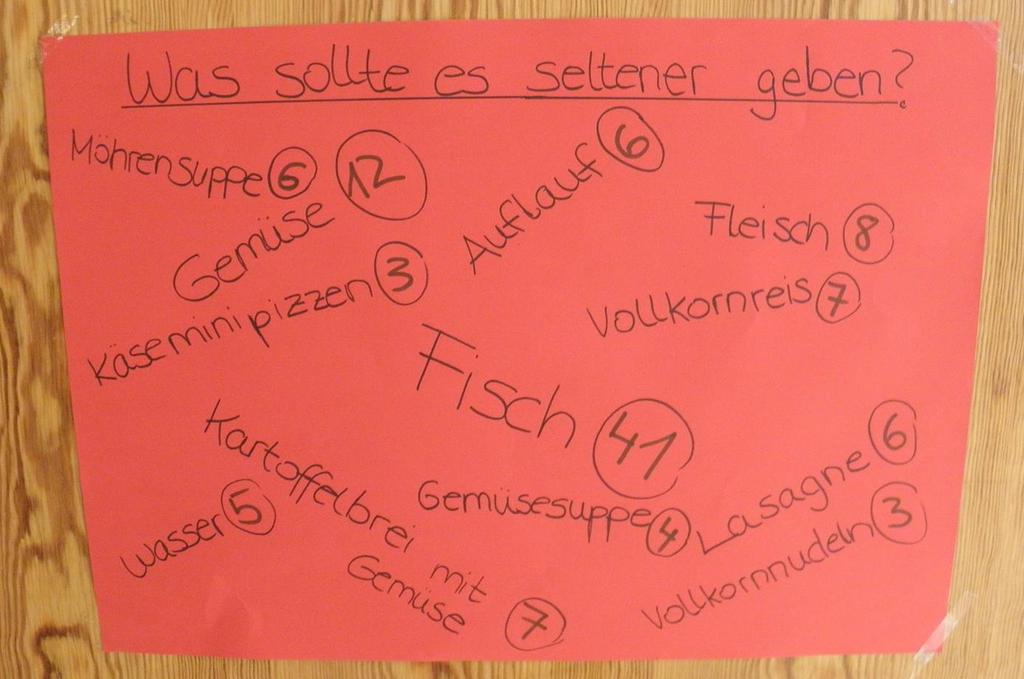 Was sollte es seltener geben?
Möhrensuppe 6
Gemüse 12
Auflauf 6
Fleisch 8
Käseminipizzen 3
Vollkornreis 7
Fisch 41
Kartoffelbrei mit
Gemüse 7
Wasser 5
Gemüsesuppe 4
Lasagne 6
Vollkornnudeln 3